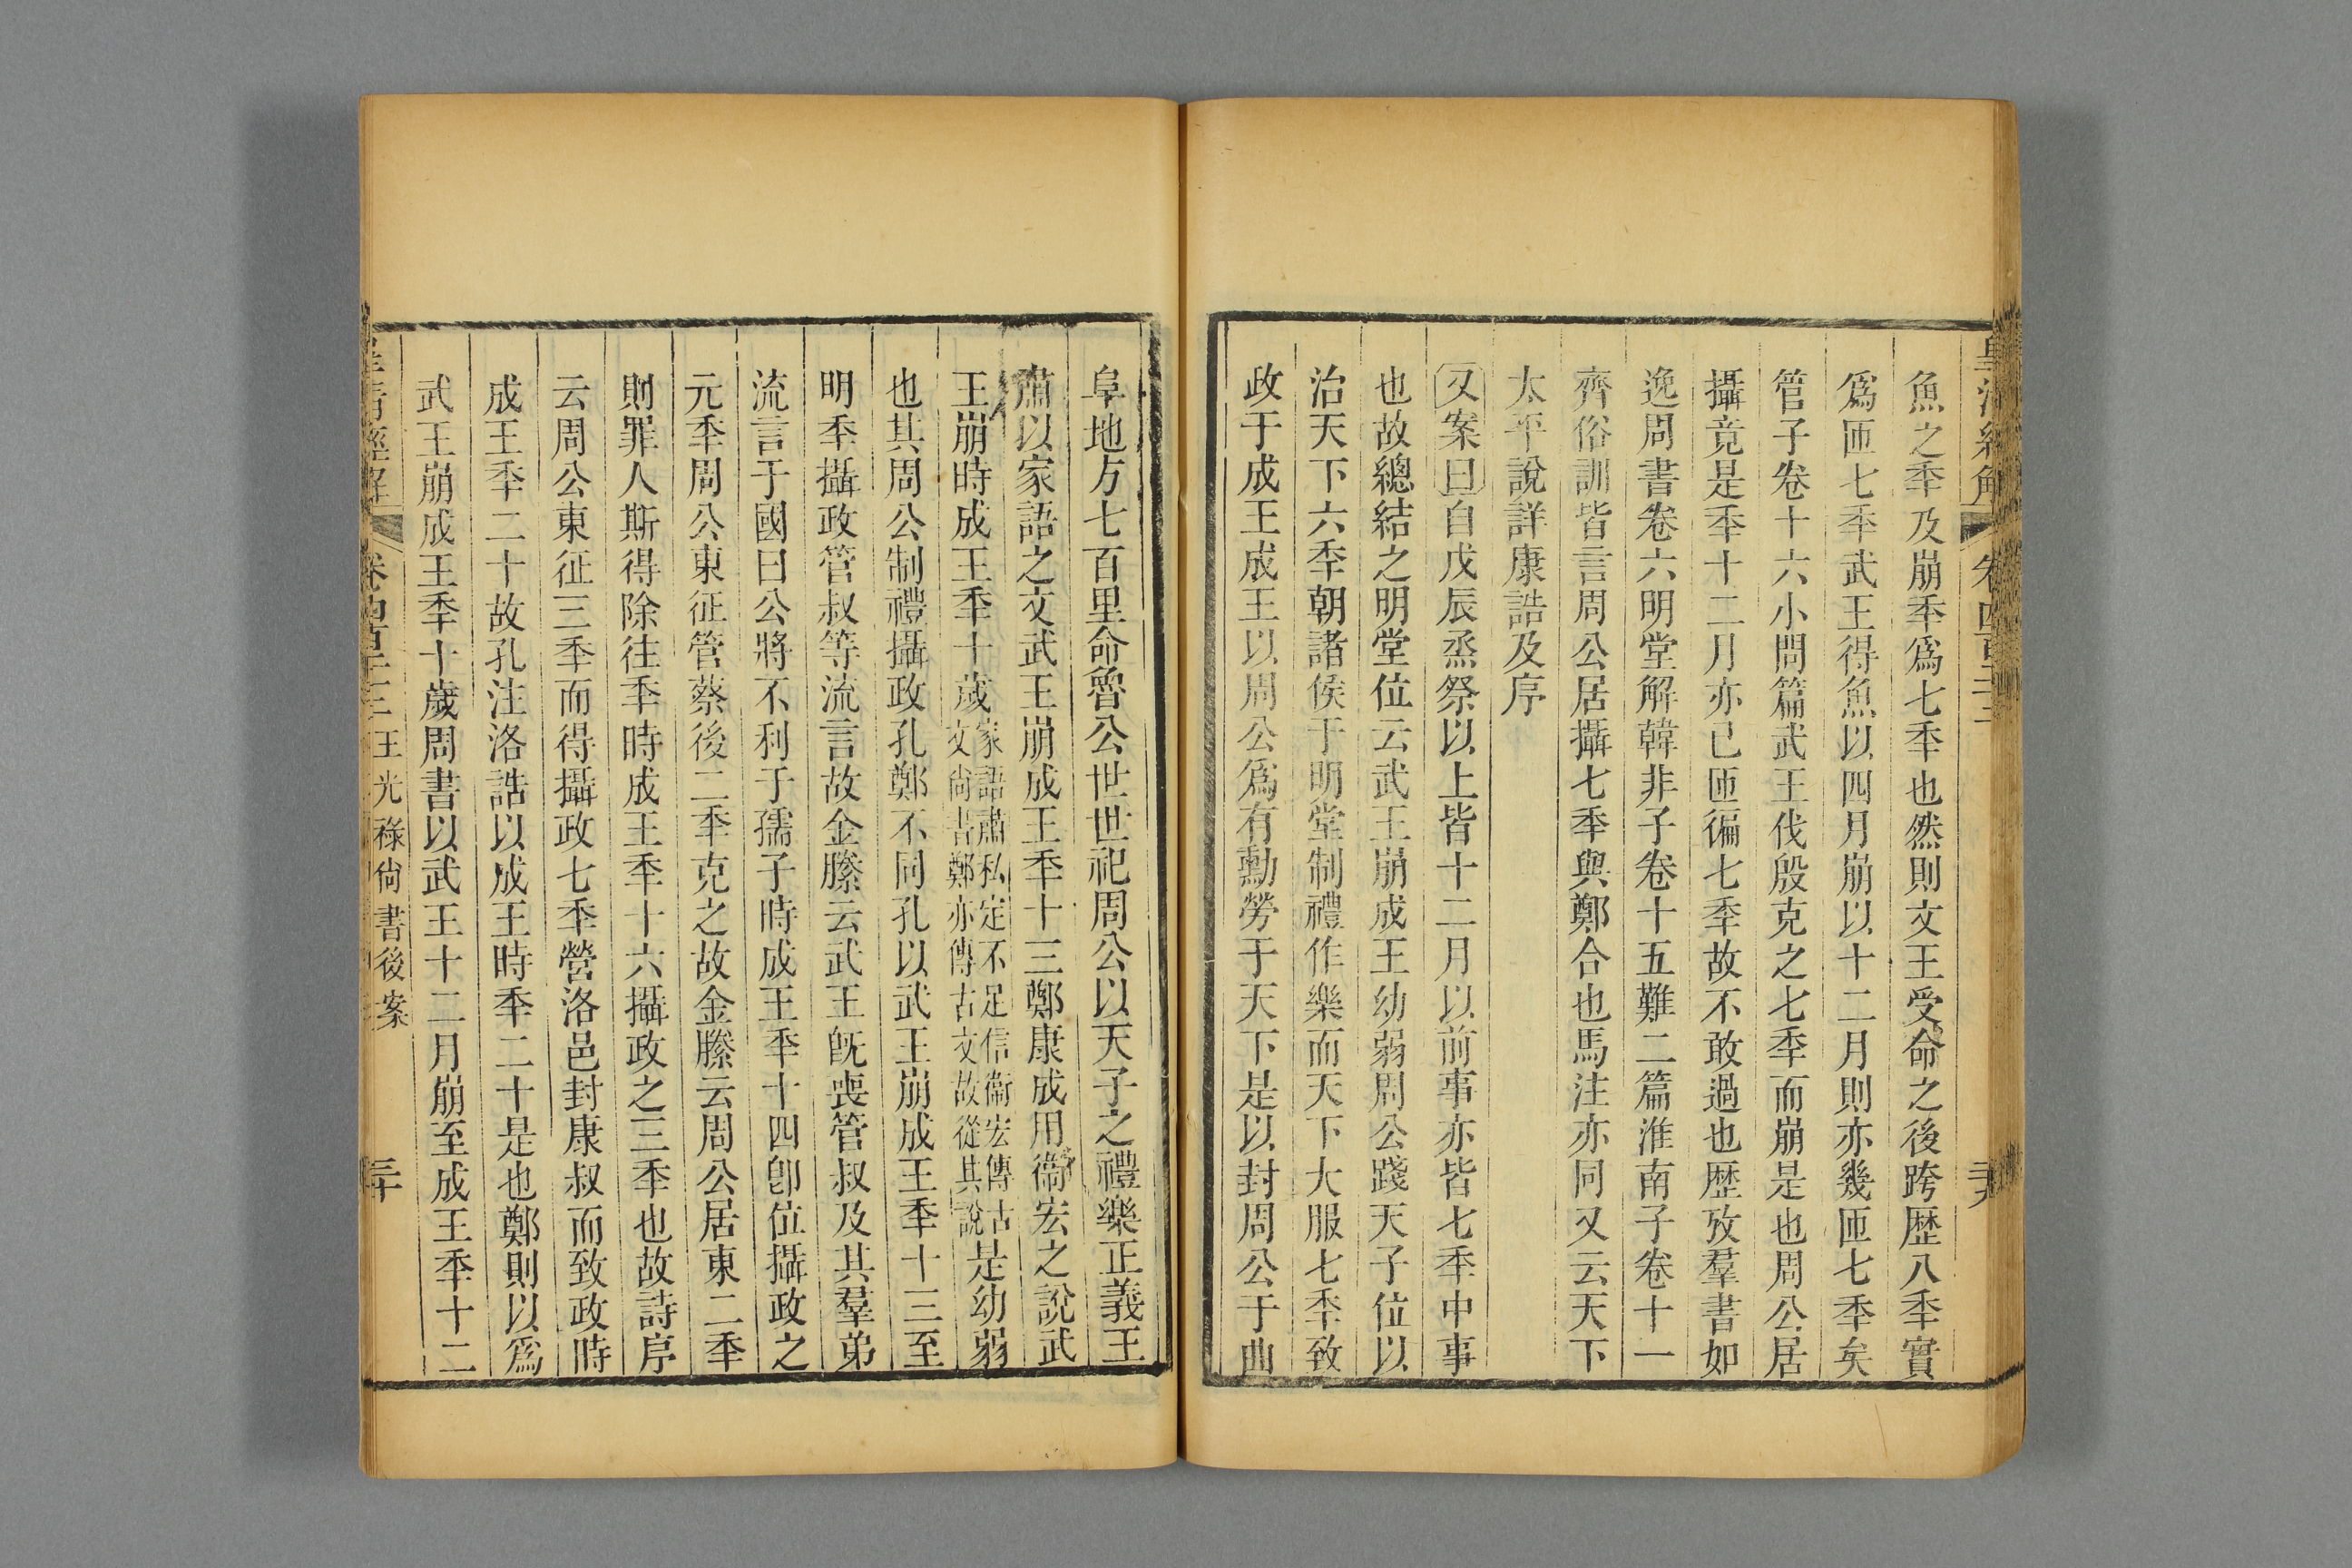 魚之秊及崩秊爲七秊也然則文王受命之後跨歴八秊實
爲匝七秊武王得魚以四月崩以十二月則亦幾匝七秊矣
管子卷十六小問篇武王伐殷克之七秊而崩是也周公居
攝竟是秊十二月亦已匝徧七秊故不敢過也歴攷羣書如
逸周書卷六明堂解韓非子卷十五難二篇淮南子卷十一
齊俗訓皆言周公居攝七秊與鄭合也馬注亦同又云天下
太平說詳康誥及序
又案曰自戊辰烝祭以上皆十二月以前事亦皆七秊中事
也故總結之明堂位云武王崩成王幼弱周公踐天子位以
治天下六秊朝諸侯于明堂制禮作樂而天下大服七秊致
政于成王成王以周公爲有勳勞于天下是以封周公于曲
阜地方七百里命魯公世世祀周公以天子之禮樂正義王
肅以家語之文武王崩成王秊十三鄭康成用衞宏之說武
王崩時成王秊十歲家語肅私定不足信衞宏傳古文尙書鄭亦傳古文故從其說是幼弱
也其周公制禮攝政孔鄭不同孔以武王崩成王秊十三至
明秊攝政管叔等流言故金縢云武王旣喪管叔及其羣弟
流言于國曰公將不利于孺子時成王秊十四卽位攝政之
元秊周公東征管蔡後二秊克之故金縢云周公居東二秊
則罪人斯得除往秊時成王秊十六攝政之三秊也故詩序
云周公東征三秊而得攝政七秊營洛邑封康叔而致政時
成王秊二十故孔注洛誥以成王時秊二十是也鄭則以爲
武王崩成王秊十歲周書以武王十二月崩至成王秊十二
皇清經解 卷四百三十三 王光祿尙書後案 三十